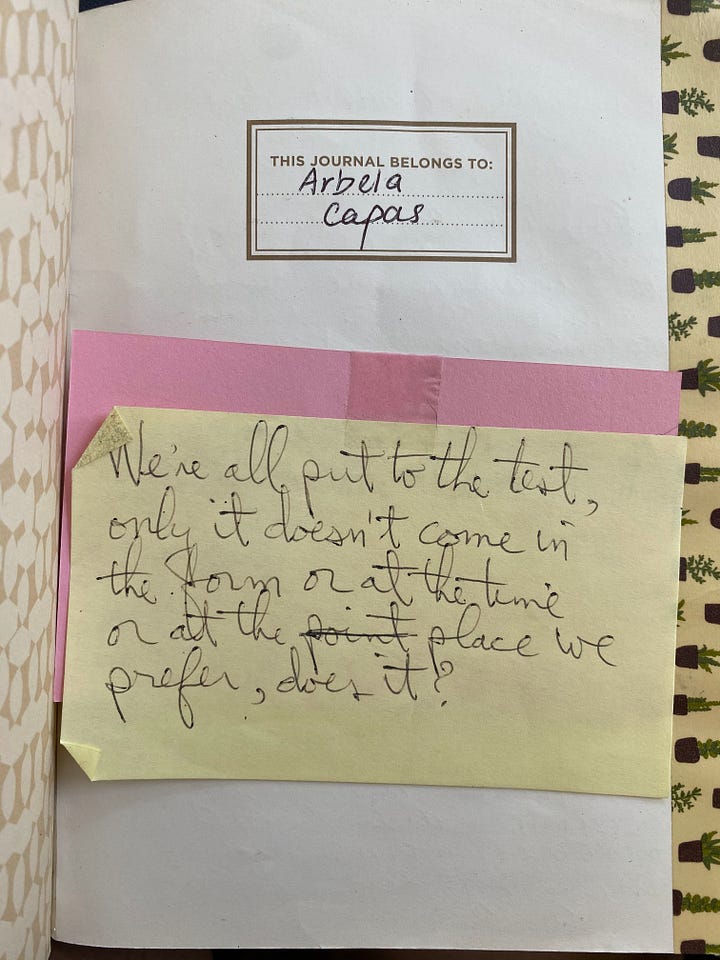 THIS JOURNAL BELONGS TO:
Arbela
Capas
We're all put to the test,
only it doesn't come in
the form or at the time
or at the point place we
prefer, does it?